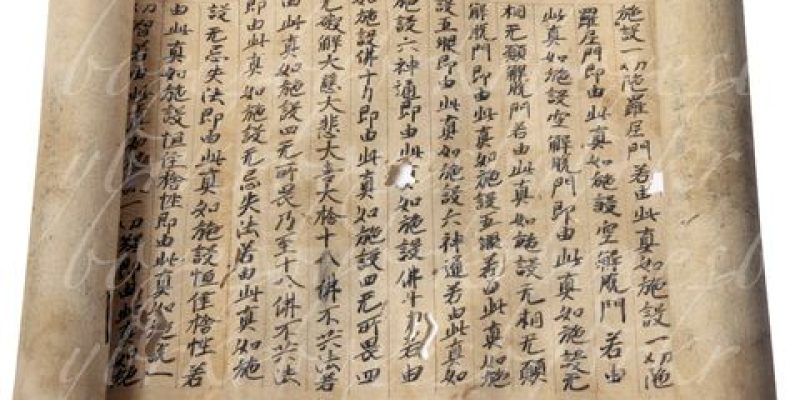 施設一切陀羅尼門若由此真如施設一切陀
羅尼門即由此真如施設空解脫門若由
此真如施設空解脫門即由此真如施設无
相无願解脫門若由此真如施設无相无願
解脫門即由此真如施設五眼若由此真如施
設五眼即由此真如施設六神通若由此真如
施設六神通即由此真如施設佛十力若由
如施設佛十力即由此真如施設四无所畏四
无礙解大慈大悲大喜大捨十八佛不共法若
由此真如施設四无所畏乃至十八佛不共法
即由此真如施設无忘失法若由此真如施
設无忘失法即由此真如施設恒住捨性若
由此真如施設恒住捨性即由此真如施設一
切智若由此真如施設一切智即由此真如施